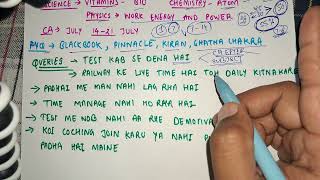 SCIENCE → VITAMINS - BIO CHEMISTRY - ATOM
PHYSICS → WORK ENERGY AND POWER.
CA → JULY 14-21 JULY 1-7 7-14
PYQ → BLACKBOOK, PINNACLE, KIRAN, GHATNA CHAKRA
QUERIES → TEST KAB SE DENA HAI
→ RAILWAY KE LIYE TIME HAI TOH DAILY KITNA KARE
→ PADHAI ME MAN NAHI LAG RHA HAI
→ TIME MANAGE NAHI HO RAHA HAI
→ TEST ME NOS NAHI AA RHE
→ KOI COCHING JOIN KARU YA NAHI
PADHA HAI MAINE